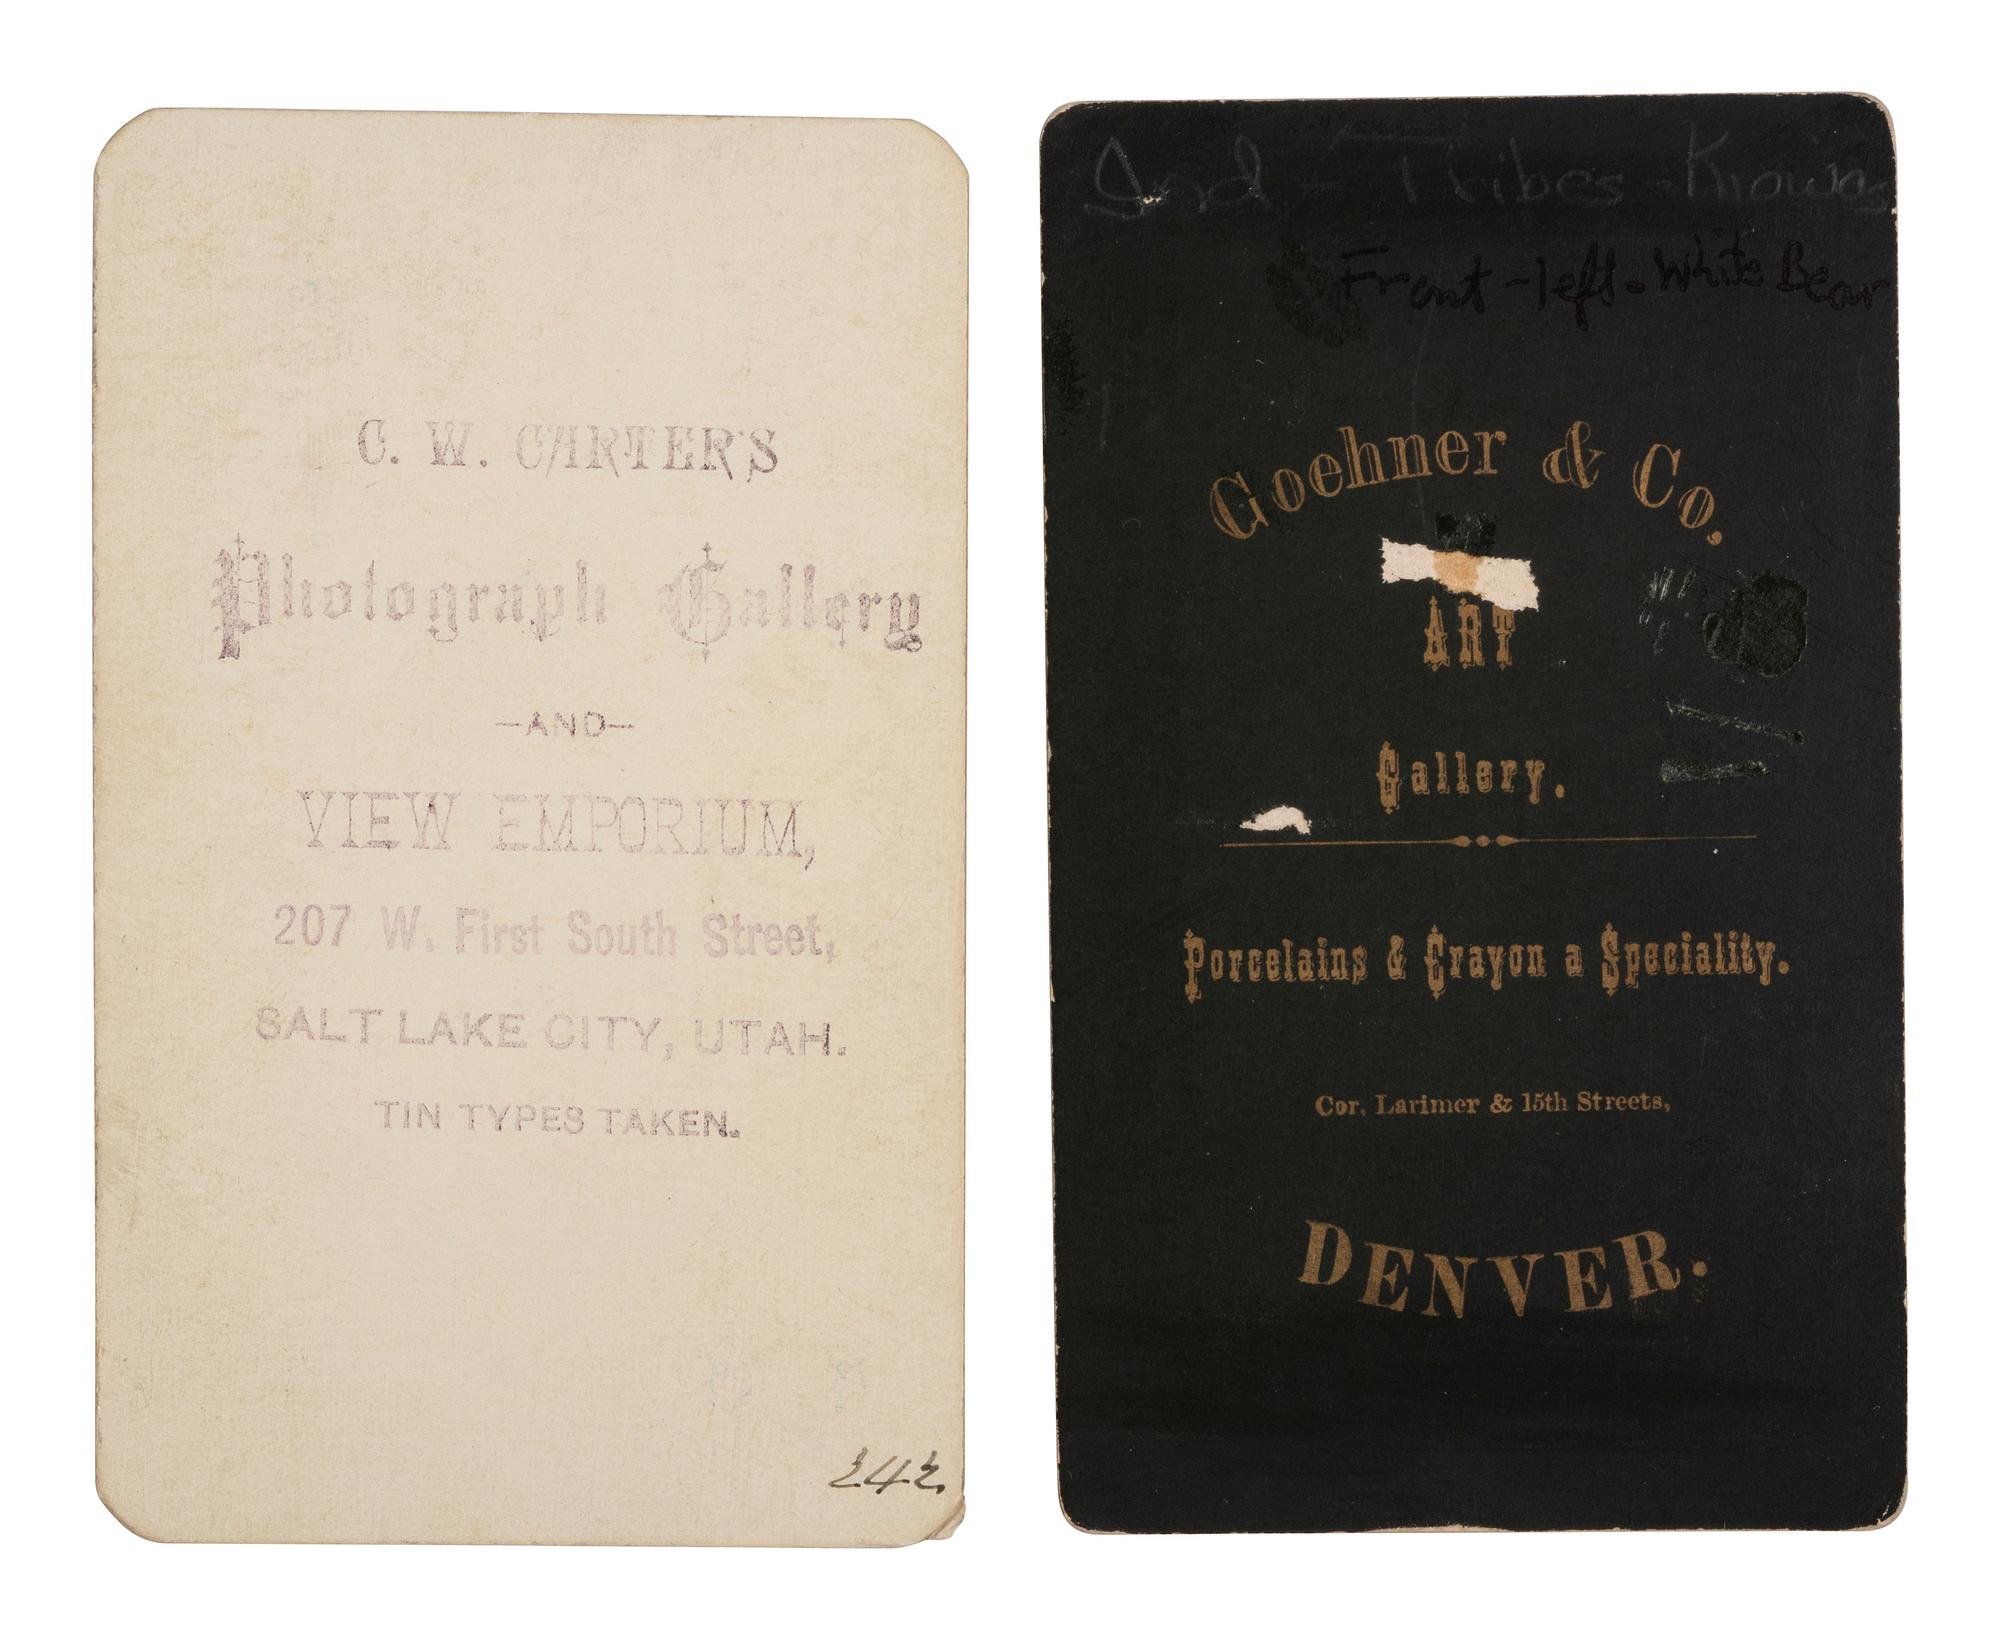 C. W. CARTER'S
Photograph Gallery
—AND—
VIEW EMPORIUM,
207 W. First South Street,
SALT LAKE CITY, UTAH.
TIN TYPES TAKEN.
242
Ind - Tribes - Kiowas
Front - left - White Bear
Goehner & Co.
ART
Gallery.
Porcelains & Crayon a Speciality.
Cor. Larimer & 15th Streets,
DENVER.